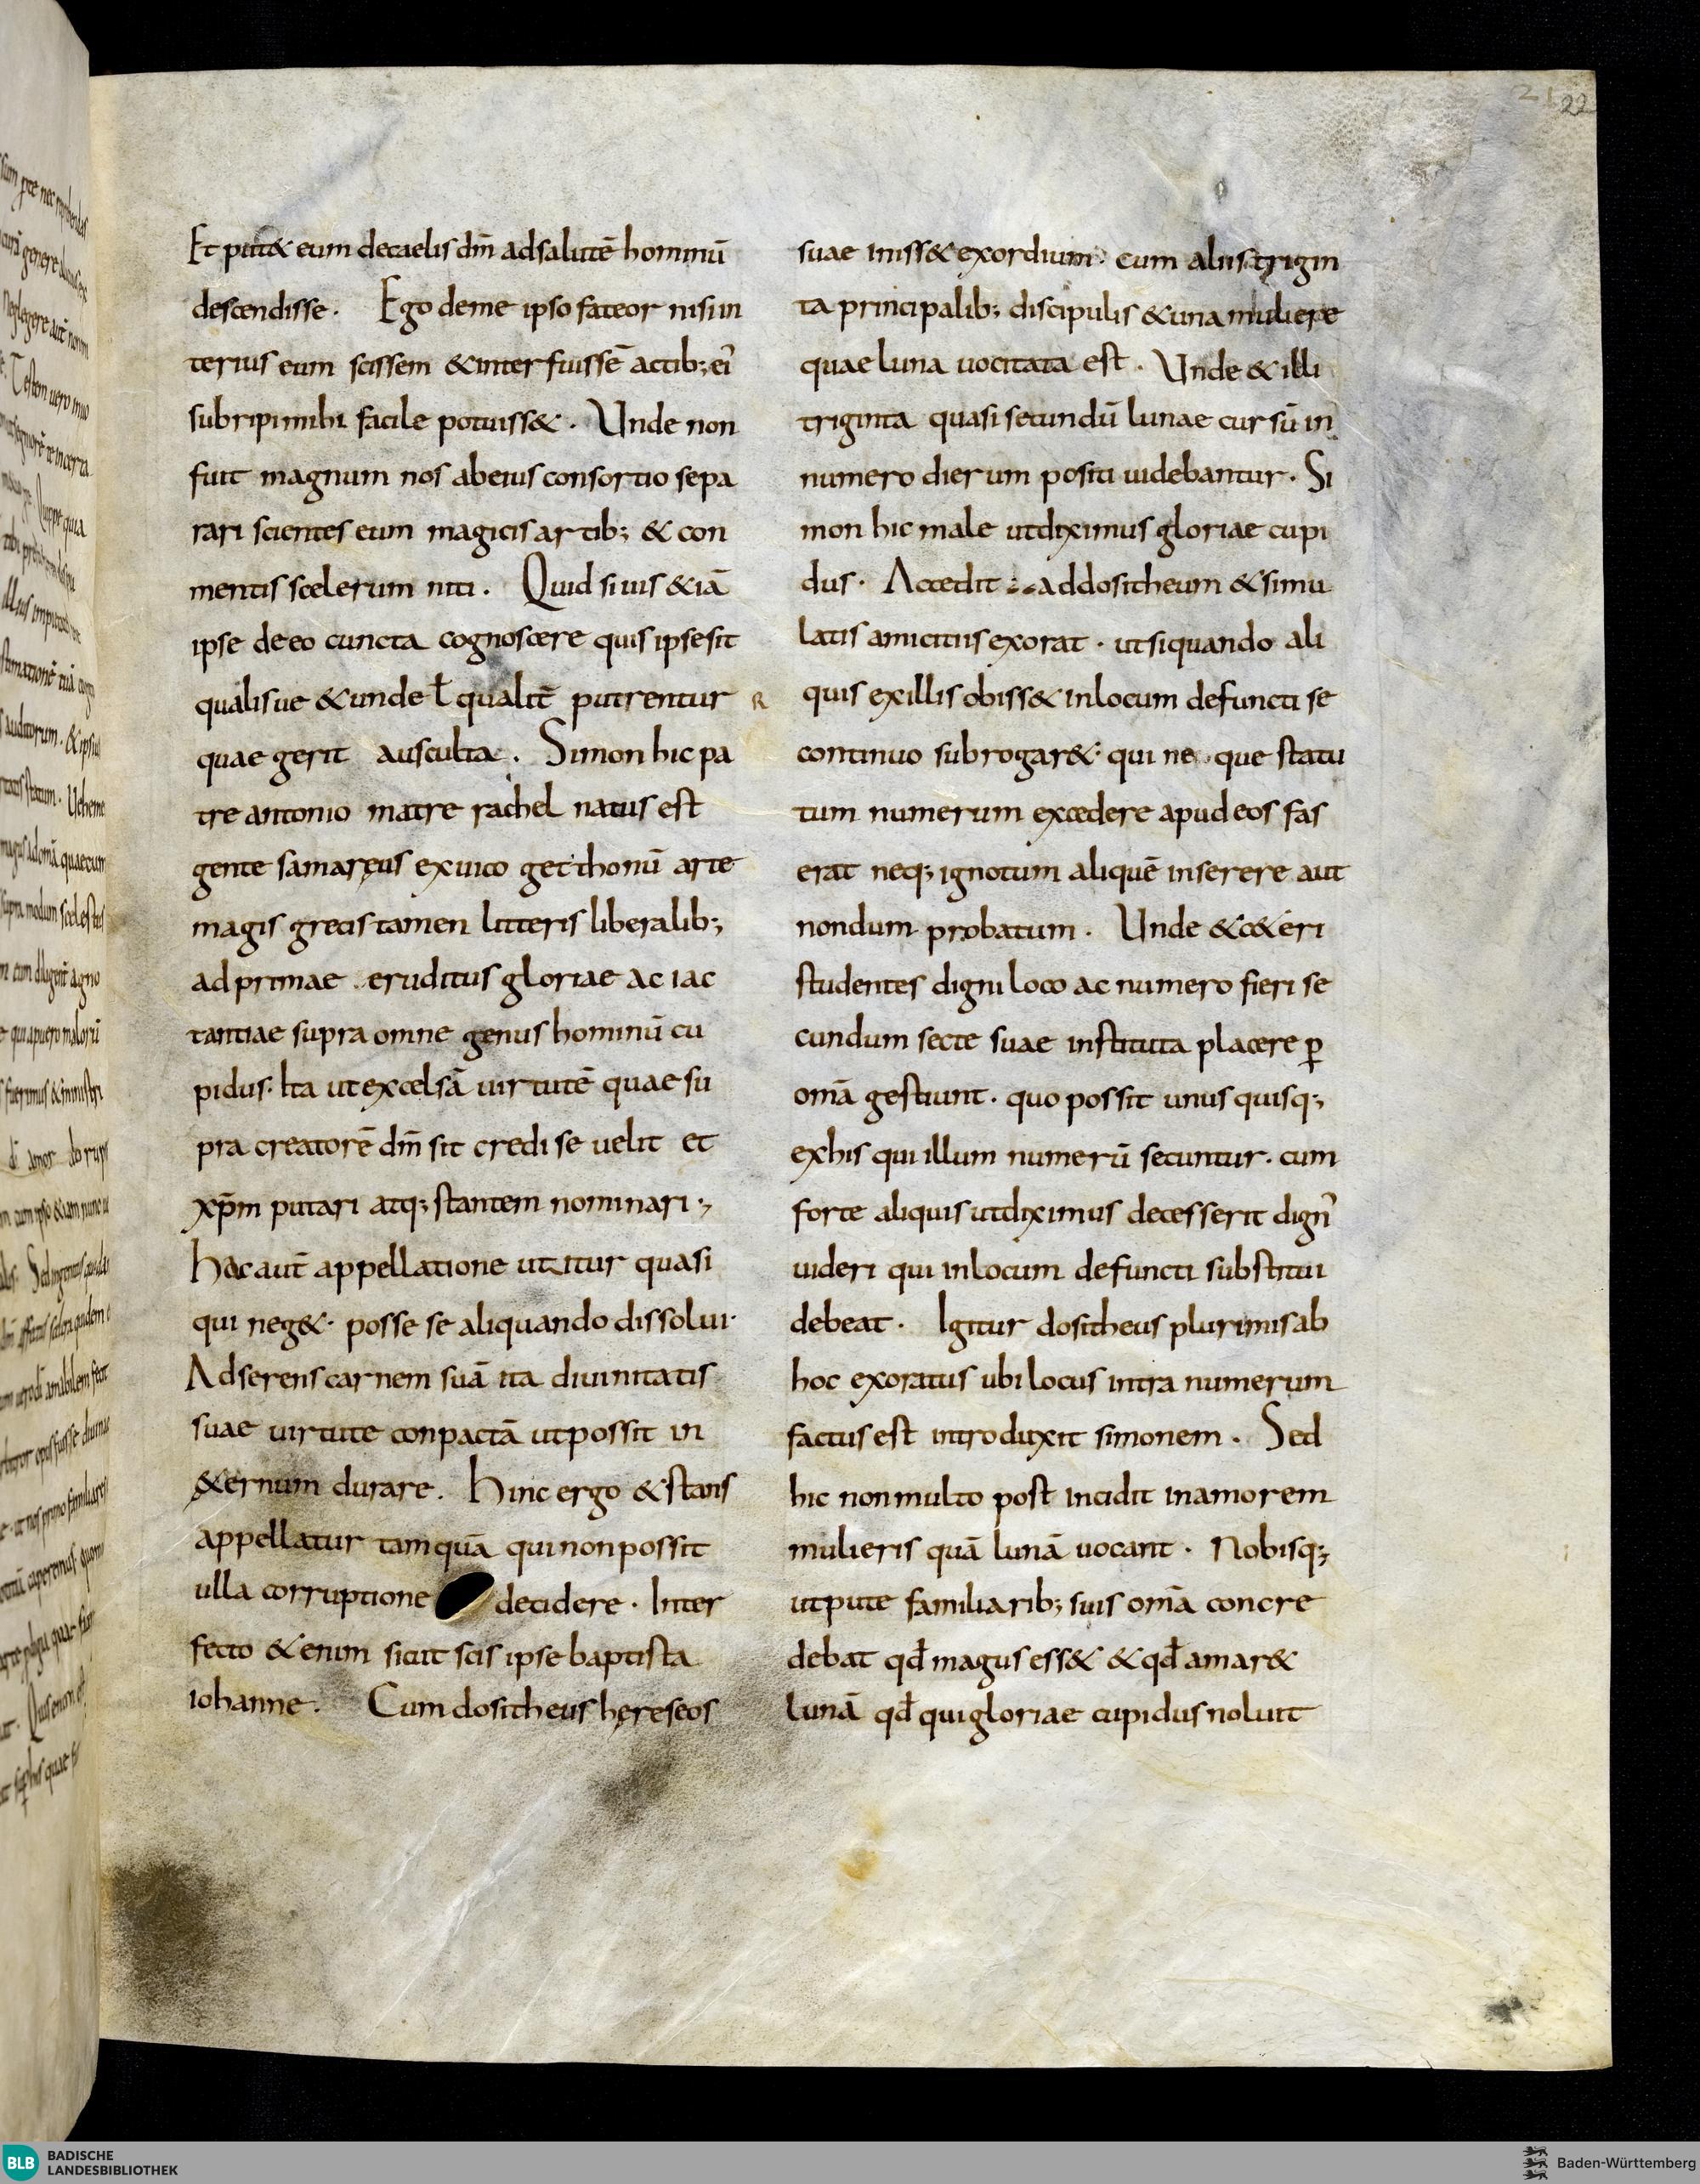 21 22
Et put& eum decaelis dm̄ adsalutē hominū
descendisse · Ego deme ipso fateor nisi in
terius eum scissem &interfuissē actib; ei᾽
subripi mihi facile potuiss& · Unde non
fuit magnum nos abeius consortio sepa
rari scientes eum magicis artib; & con
mentis scelerum niti . Quid si uis &iā
ipse de eo cuncta cognoscere quis ipse sit
qualisue &unde ł qualit̄ putrentur
quae gerit ausculta . Simon hic pa
tre antonio matre rachel natus est
gente samaręus exuico getthonū arte
magis grecis tamen litteris liberalib;
adprimae eruditus gloriae ac iac
tantiae supra omne genus hominū cu
pidus · Ita ut excelsā uirtutē quae su
pra creatorē dm̄ sit credi se uelit et
xp̄m putari atq; stantem nominari ·,
Hac aut̄ appellatione utitur quasi
qui neg& · posse se aliquando dissolui ·
Adserens carnem suā ita diuinitatis
suae uirtute conpactā ut possit in
&ernum durare . Hinc ergo & stans
appellatur tamquā qui non possit
ulla corruptione decidere · Inter
fecto &enim sicut scis ipse baptista
iohanne . Cum dositheus hereseos
R
suae iniss& exordium · cum aliis trigin
ta principalib; discipulis & una muliere
quae luna uocitata est . Unde & illi
triginta quasi secundū lunae cursū in
numero dierum positi uidebantur . Si
mon hic male utdiximus gloriae cupi
dus · Accedit ad dositheum & simu
latis amicitiis exorat · ut si quando ali
quis exillis obiss& inlocum defuncti se
continuo subrogar& · qui ne que statu
tum numerum excedere apud eos fas
erat neq; ignotum aliquē inserere aut
nondum probatum . Unde & c&eri
studentes digni loco ac numero fieri se
cundum secte suae instituta placere ꝑ
om̄a gestiunt · quo possit unus quisq;
exhis qui illum numerū secuntur · cum
forte aliquis utdiximus decesserit dign᾽
uideri qui inlocum defuncti substitui
debeat . Igitur dositheus plurimis ab
hoc exoratus ubi locus intra numerum
factus est introduxit simonem . Sed
hic non multo post incidit in amorem
mulieris quā lunā uocant . Nobisq;
utpute familiarib; suis om̄a concre
debat qđ magus ess& & qđ amar&
lunā qđ qui gloriae cupidus noluit
BLB BADISCHE
LANDESBIBLIOTHEK
Baden-Württemberg